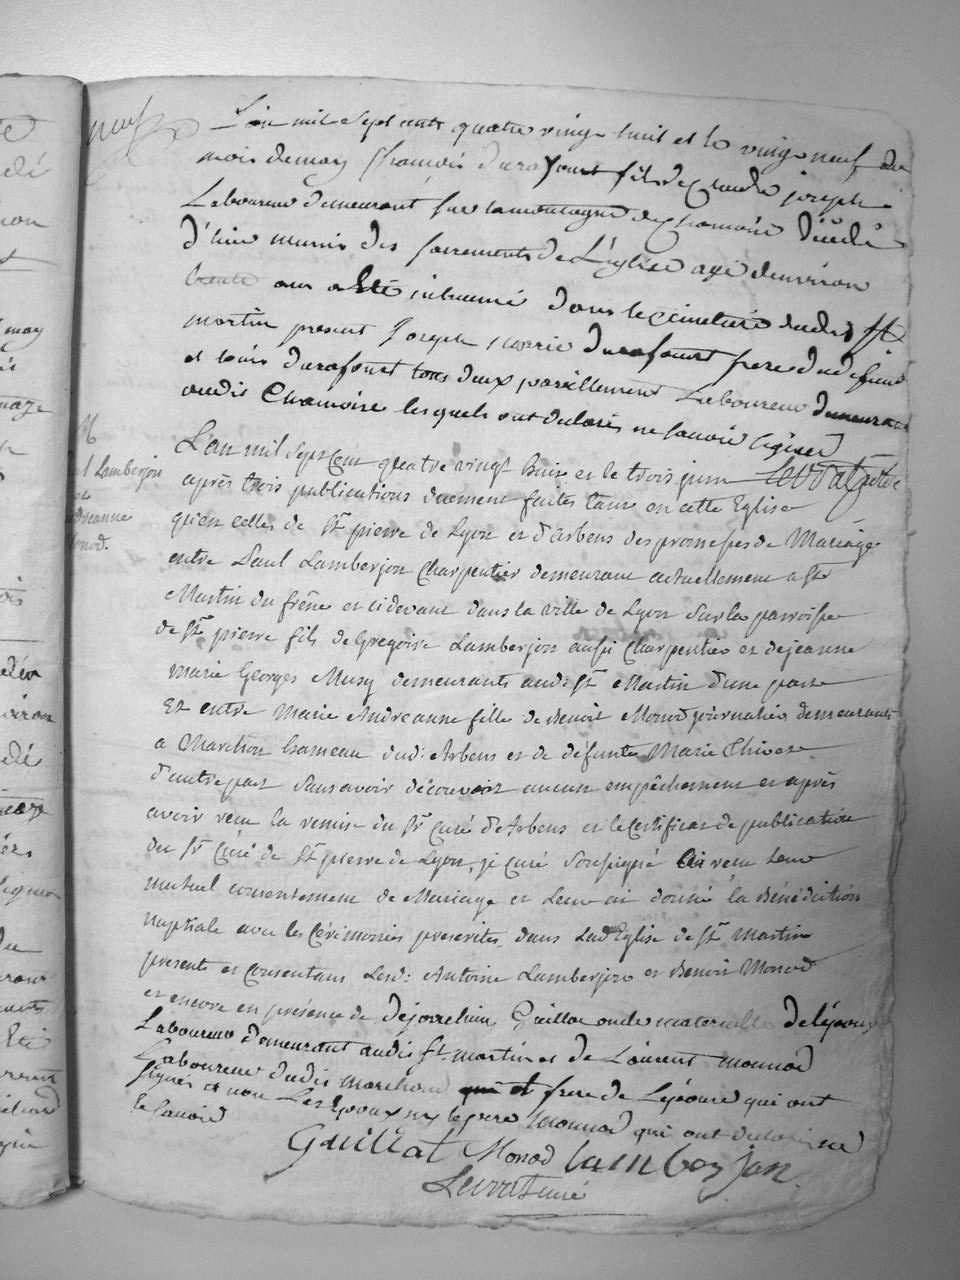 neuf
L'an mil sept cents quatre vingt huit et le vingt neuf du
mois de may francois Durafourt fils de Claude joseph
Laboureur demeurant sur la montagne de Chamoise Décédé
d'hier munis des sacrements de L'église agé d'environ
trente ans a Eté inhumé dans le cimetière dudit St
martin present Joseph marie Durafourt frere du defunt
et louis Durafourt tous deux pareillement Laboureur demeurants
audit Chamoise lesquels ont déclarés ne savoir signer
M
Paul Lamberjon
et
Andreanne
Monod.
L'an mil Sept Cent quatre vingt huit et le trois juin
après trois publications duement faites tant en cette Eglise
qu'en celles de St pierre de Lyon et d'Arbens des promesses de Mariage
entre Paul Lamberjon Charpentier demeurant actuellement a St
Martin du frêne et cidevant dans la ville de Lyon Sur la parroisse
de St pierre fils de Gregoire Lamberjon aussi Charpentier et de jeanne
Marie Georges Musy demeurants audit St Martin d'une part
Et entre Marie Andreanne fille de Benoit Monod journalier demeurants
a Marchon hameau dud: Arbens et de défunte Marie
d'autre part Sans avoir découvert aucun empêchement et après
avoir recu la remise du Sr Curé d'Arbens et le Certificat de publication
du Sr Curé de St pierre de Lyon, je curé Soussigné ai recu leur
mutuel consentement de Mariage et Leur ai donné la Bénédiction
nuptiale avec les Cérémonies prescrites dans Lad Eglise de St Martin
presents et Consentans Lesd: Antoine Lamberjon et Benoit Monod
et encore en présence de Guillat oncle maternelle de l'épouse
Laboureur demeurant audit St martin et de Laurent monnod
Laboureur dudit marchon qui et frere de L'épouse qui ont
signés et non Les Epoux ny le pere Monnod qui ont déclarés ne
le savoir
Guillat Monod lamberjon